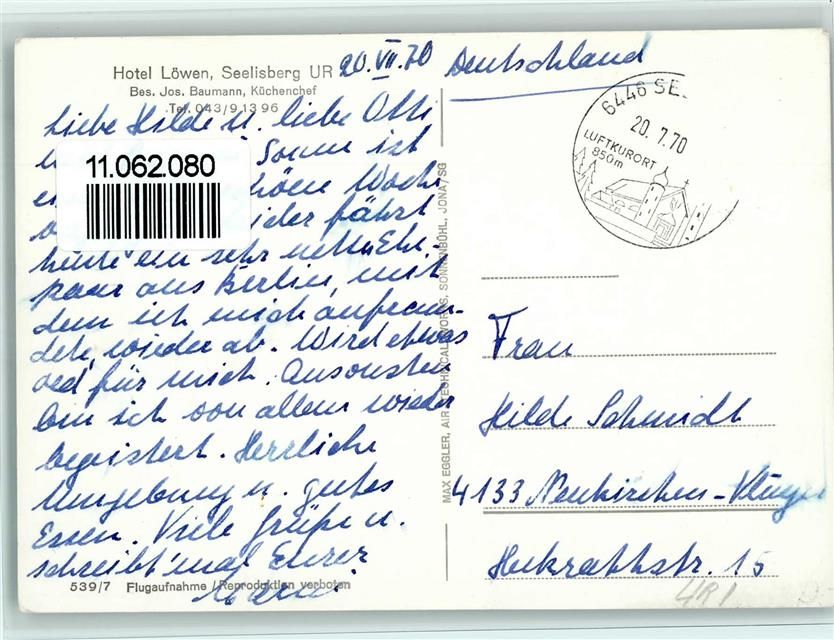 Hotel Löwen, Seelisberg UR
Bes. Jos. Baumann, Küchenchef
Tel. 043/9 13 96
20. VII. 70
Deutschland
Liebe Hilde u. liebe Otti
Sonne ist
Woche
fährt
heute ein sehr nettes Ehe-
paar aus Berlin, mit
dem ich mich anfreun-
dete, wieder ab. Wird etwas
oed für mich. Ansonsten
bin ich von allem wieder
begeistert. Herrliche
Umgebung u. gutes
Essen. Viele Grüße u.
schreibt mal Eurer
539/7 Flugaufnahme / Reproduktion verboten
11.062.080
MAX EGGLER, AIR TECHNICAL WORKS, SONNENBÜHL, JONA/SG
6446 SE
20. 7. 70
LUFTKURORT
850m
Frau
Hilde Schmidt
4133 Neukirchen-Vluyn
Hukrathstr. 15